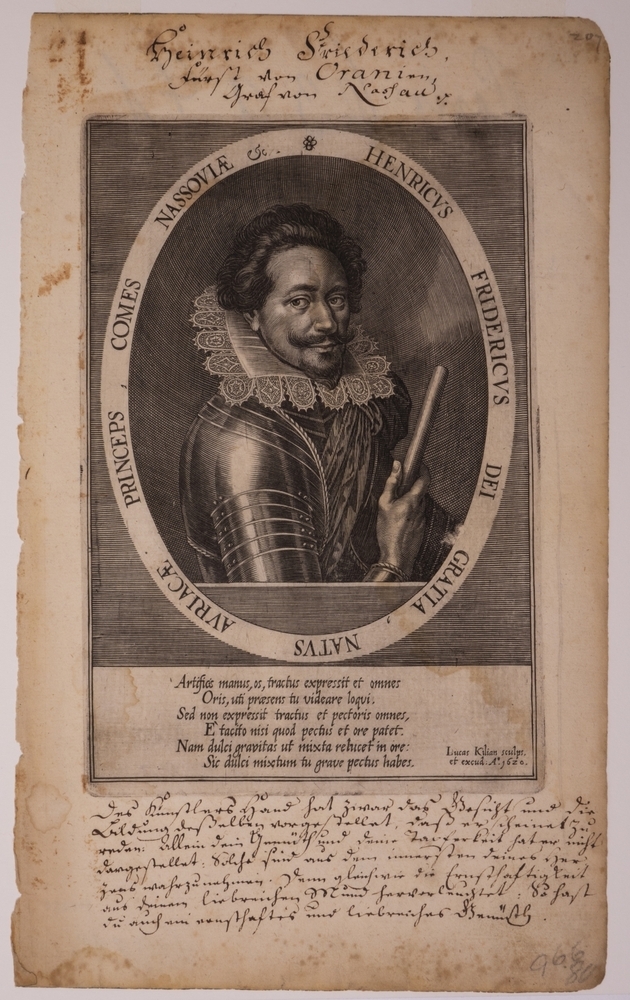 Heinrich Friederich,
Fürst von Oranien,
Graf von Nassau
207
HENRICVS FRIDERICVS DEI GRATIA, NATVS AVRIACÆ PRINCEPS, COMES NASSOVIÆ &c.
Artificis manus, os, tractus expressit et omnes
Oris, uti præsens tu videare loqui.
Sed non expressit tractus et pectoris omnes,
E tacito nisi quod pectus et ore patet.
Nam dulci gravitas ut mixta relucet in ore:
Sic dulci mixtum tu grave pectus habes.
Lucas Kilian sculps.
et excud. Aº. 1620.
Des Künstlers Hand hat zwar das Gesicht und die
Bildung desselben vorgestellet, daß er scheinet zu
reden: Allein dein Gemüth und deine Tapferkeit hat er nicht
dargestellet: Solche sind aus dem innersten deines Her-
zens wahrzunehmen. Denn gleichwie die Ernsthaftigkeit
aus deinem liebreichen Mund hervorleuchtet: So hast
du auch ein ernsthaftes und liebreiches Gemüth.